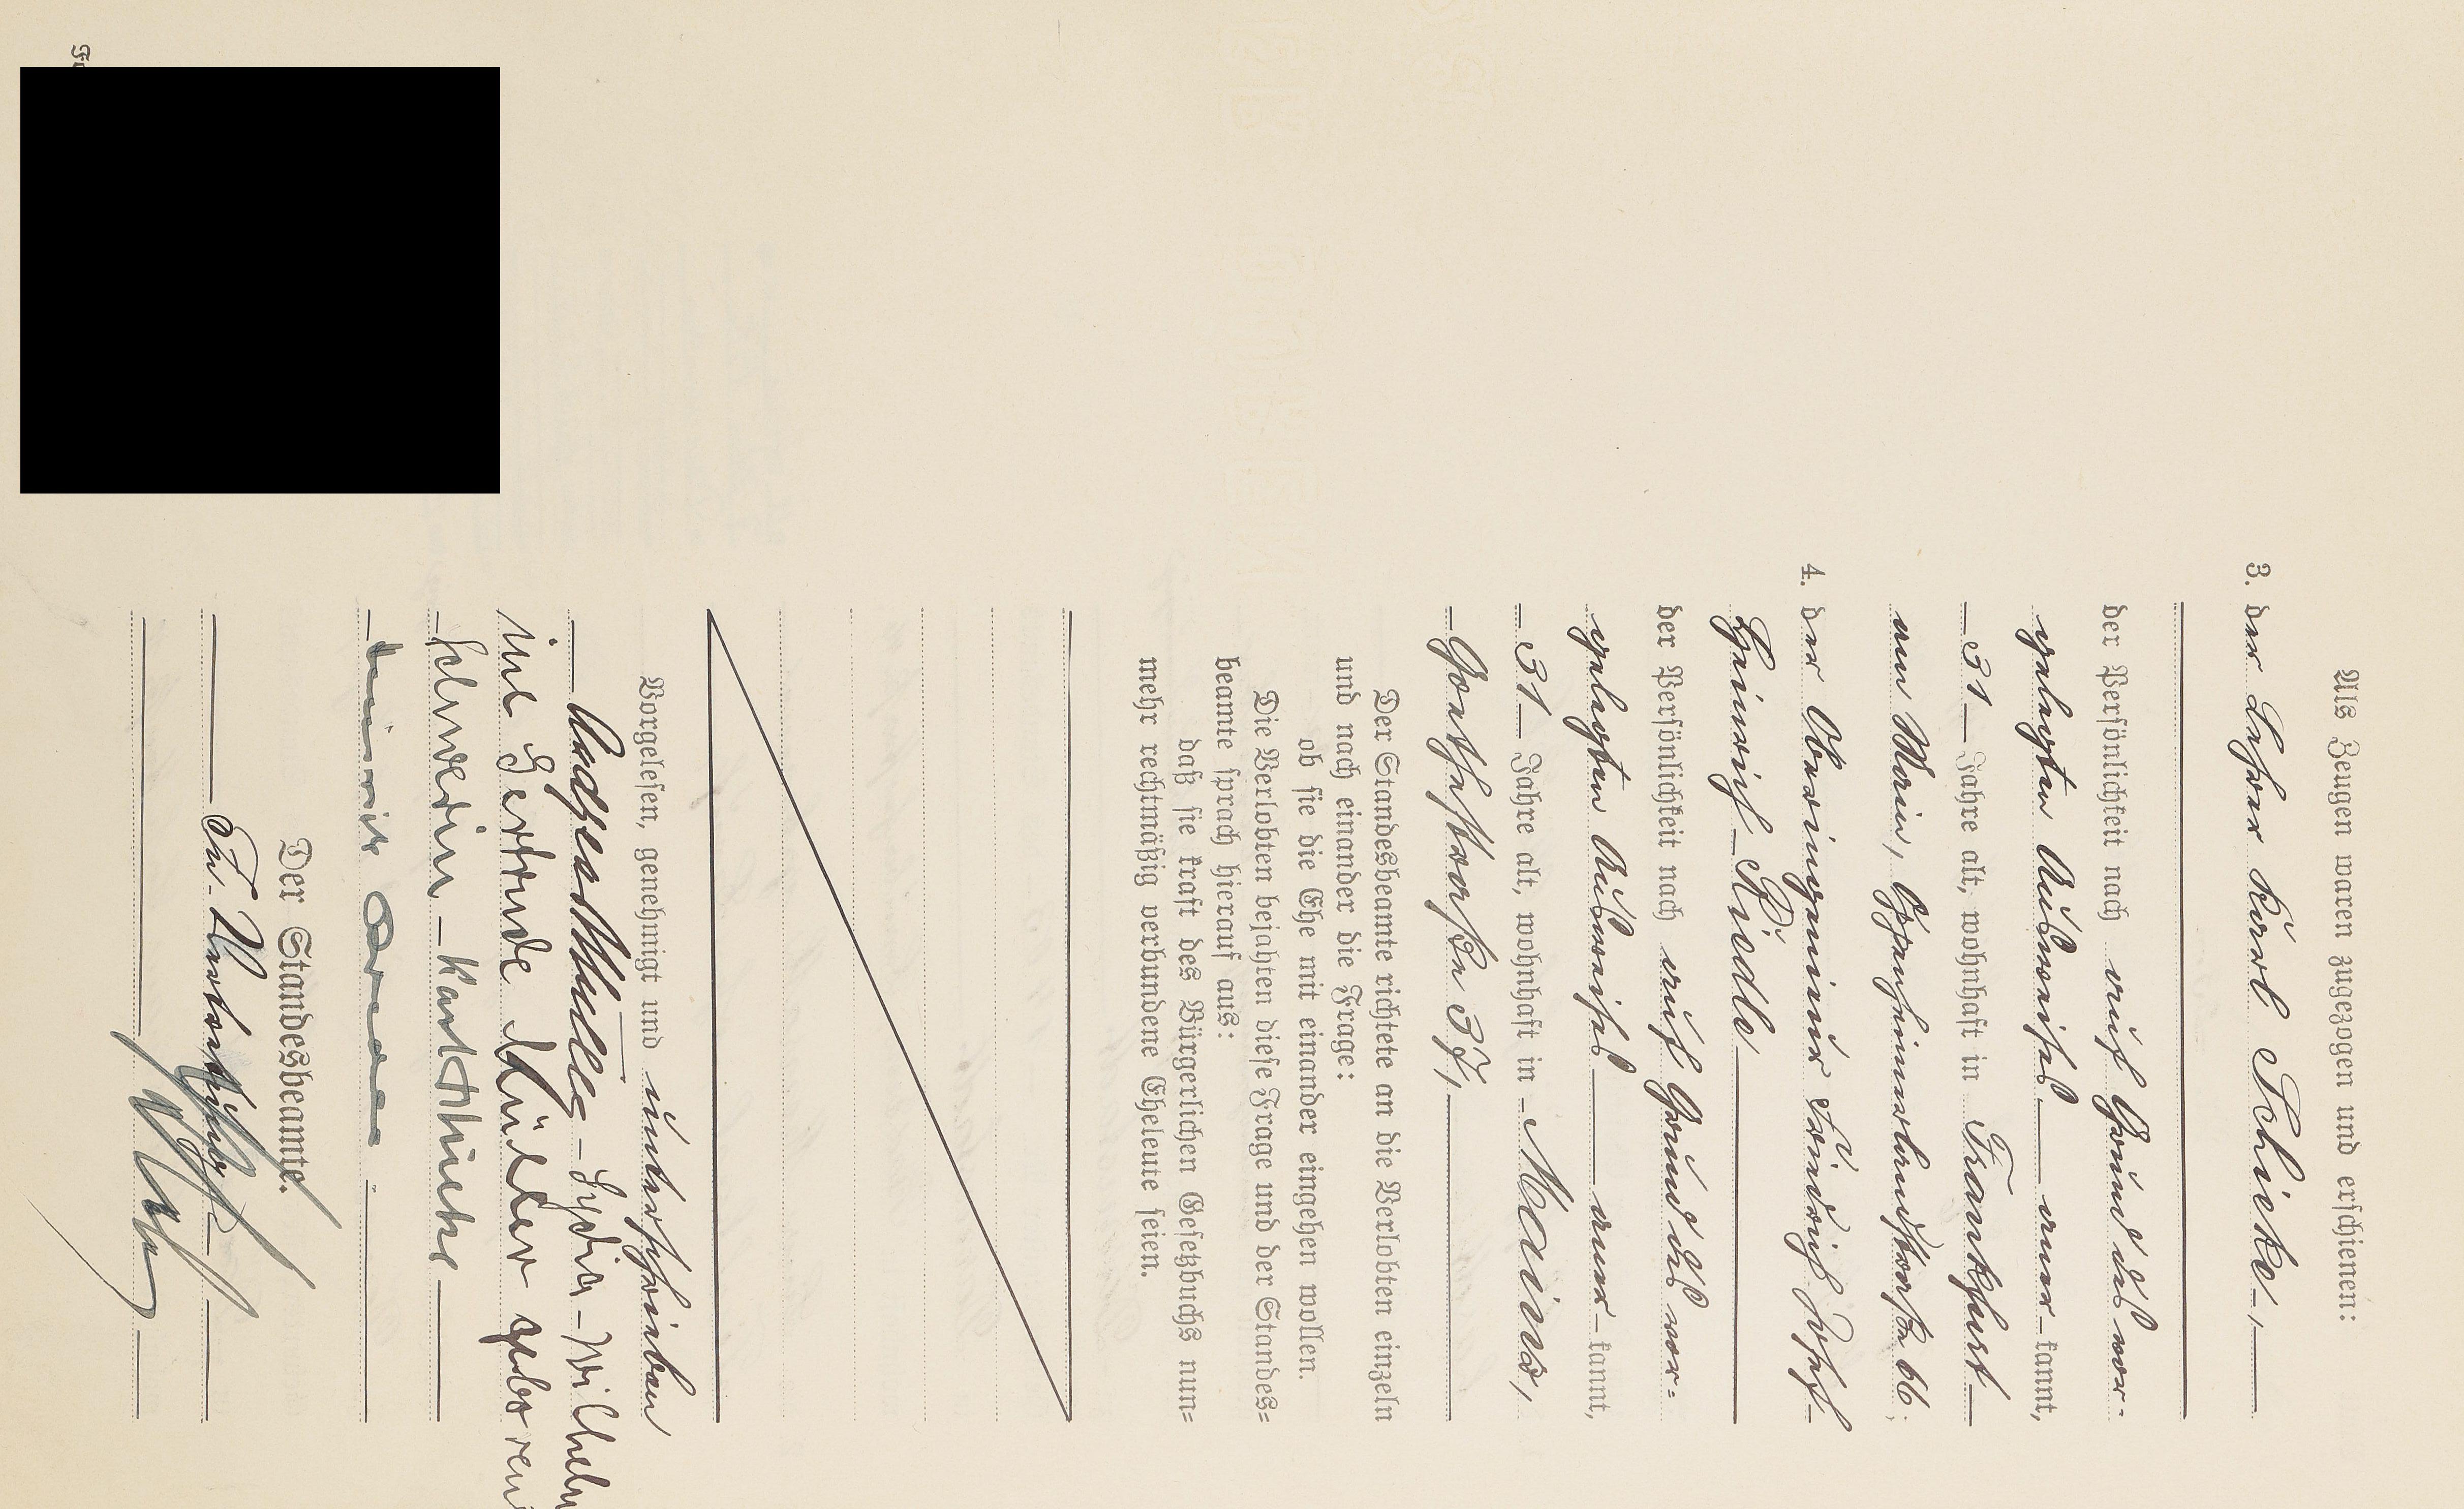 Als Zeugen waren zugezogen und erschienen:
3. der Lehrer Karl Schicke,
der Persönlichkeit nach auf Grund des vor-
gelegten Ausweises aner kannt,
31 Jahre alt, wohnhaft in Frankfurt
am Main, Eschersheimerlandstraße 66;
4. der Oberingenieur Heinrich
Heinrich Riedle
der Persönlichkeit nach auf Grund des vor-
gelegten Ausweises aner kannt,
31 Jahre alt, wohnhaft in Mainz,
Goethestraße 37,
Der Standesbeamte richtete an die Verlobten einzeln
und nach einander die Frage:
ob sie die Ehe mit einander eingehen wollen.
Die Verlobten bejahten diese Frage und der Standes-
beamte sprach hierauf aus:
daß sie kraft des Bürgerlichen Gesetzbuchs nun-
mehr rechtmäßig verbundene Eheleute seien.
Vorgelesen, genehmigt und unterschrieben
Müller Lydia Wilhelm
ine Gertrude Müller geborene
Der Standesbeamte.